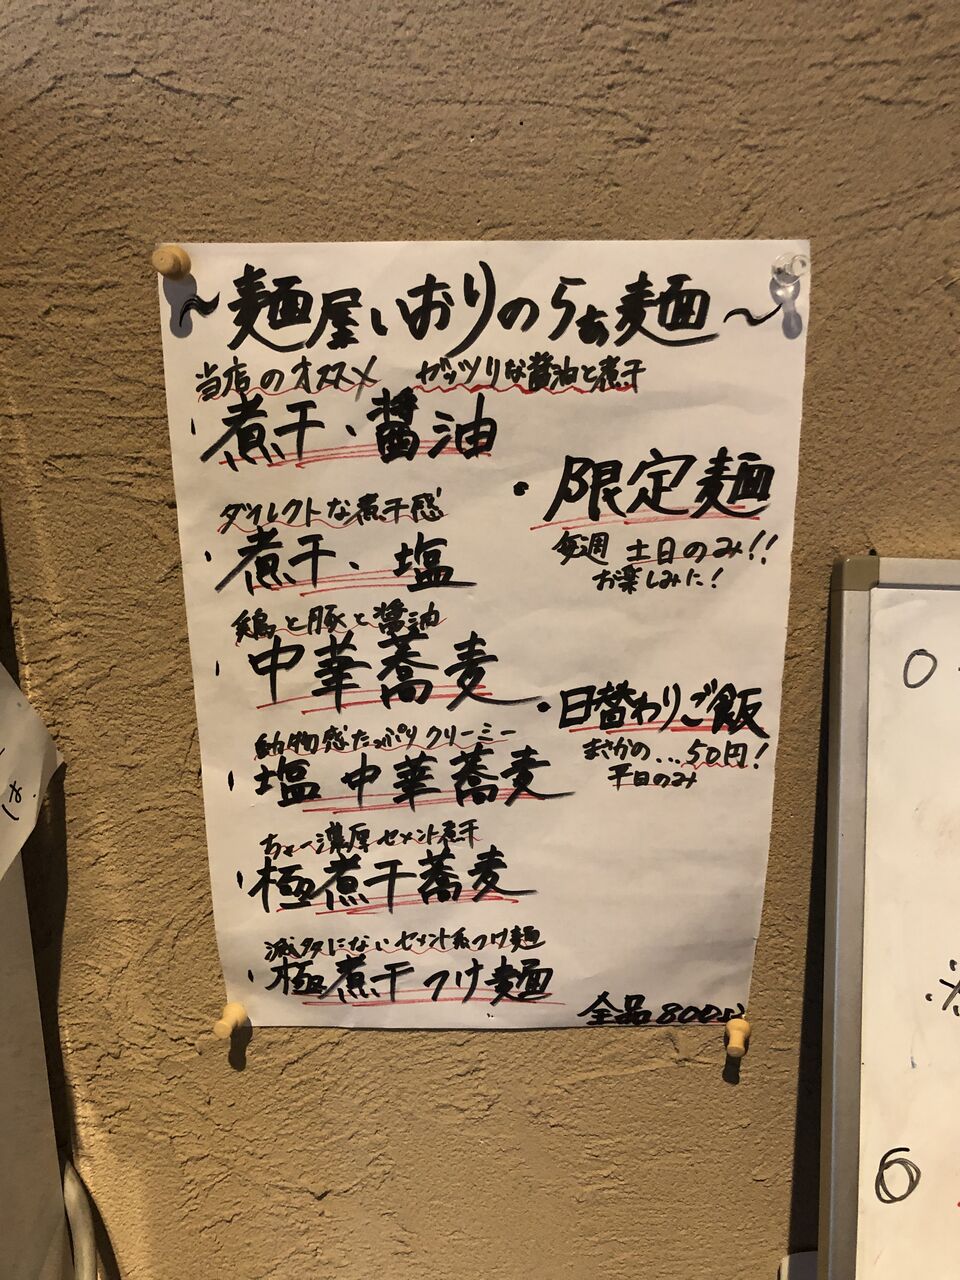 〜麺屋いおりのらぁ麺〜
当店のオススメ ガッツリな醤油と煮干
・煮干、醤油
ダイレクトな煮干感
・煮干、塩
鶏と豚と醤油
・中華蕎麦
動物感たっぷりクリーミー
・塩 中華蕎麦
ちょー濃厚セメント煮干
・極煮干蕎麦
滅多にないセメント系つけ麺
・極煮干つけ麺
・限定麺
毎週 土日のみ!!
お楽しみに!
・日替わりご飯
まさかの...50円!
平日のみ
全品800
0
6